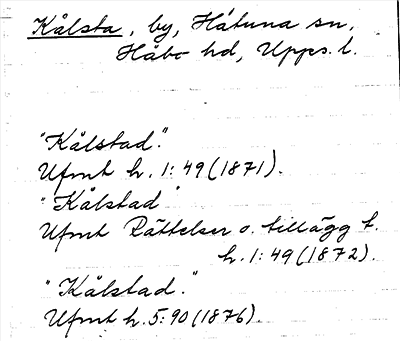 Kålsta, by, Håtuna sn,
Håbo hd, Upps. l.
"Kålstad".
Ufmt h. 1:49 (1871).
"Kålstad"
Ufmt Rättelser o. tillägg t.
h. 1:49 (1872).
"Kålstad."
Ufmt h. 5:90 (1876).